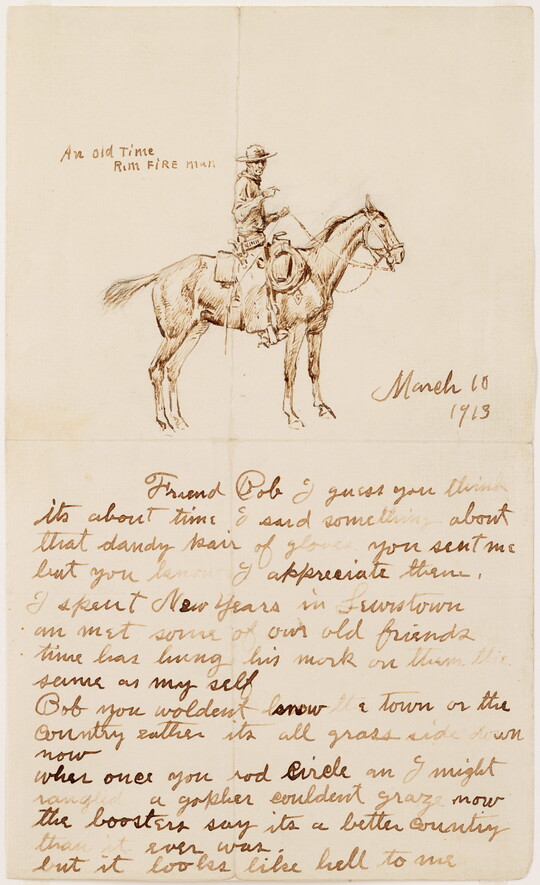 An Old Time
Rim FIRE man
March 10
1913
Friend Bob I guess you think
its about time I said something about
that dandy pair of gloves you sent me
but you know I appreciate them.
I spent New Years in Lewistown
an met some of our old friends
time has hung his mork on them the
same as my self
Bob you woldent know the town or the
country eather its all grass side down
now
wher once you rod circle an I night
rangled a gopher couldent graze now
the boosters say its a better country
than it ever was.
but it looks like hell to me